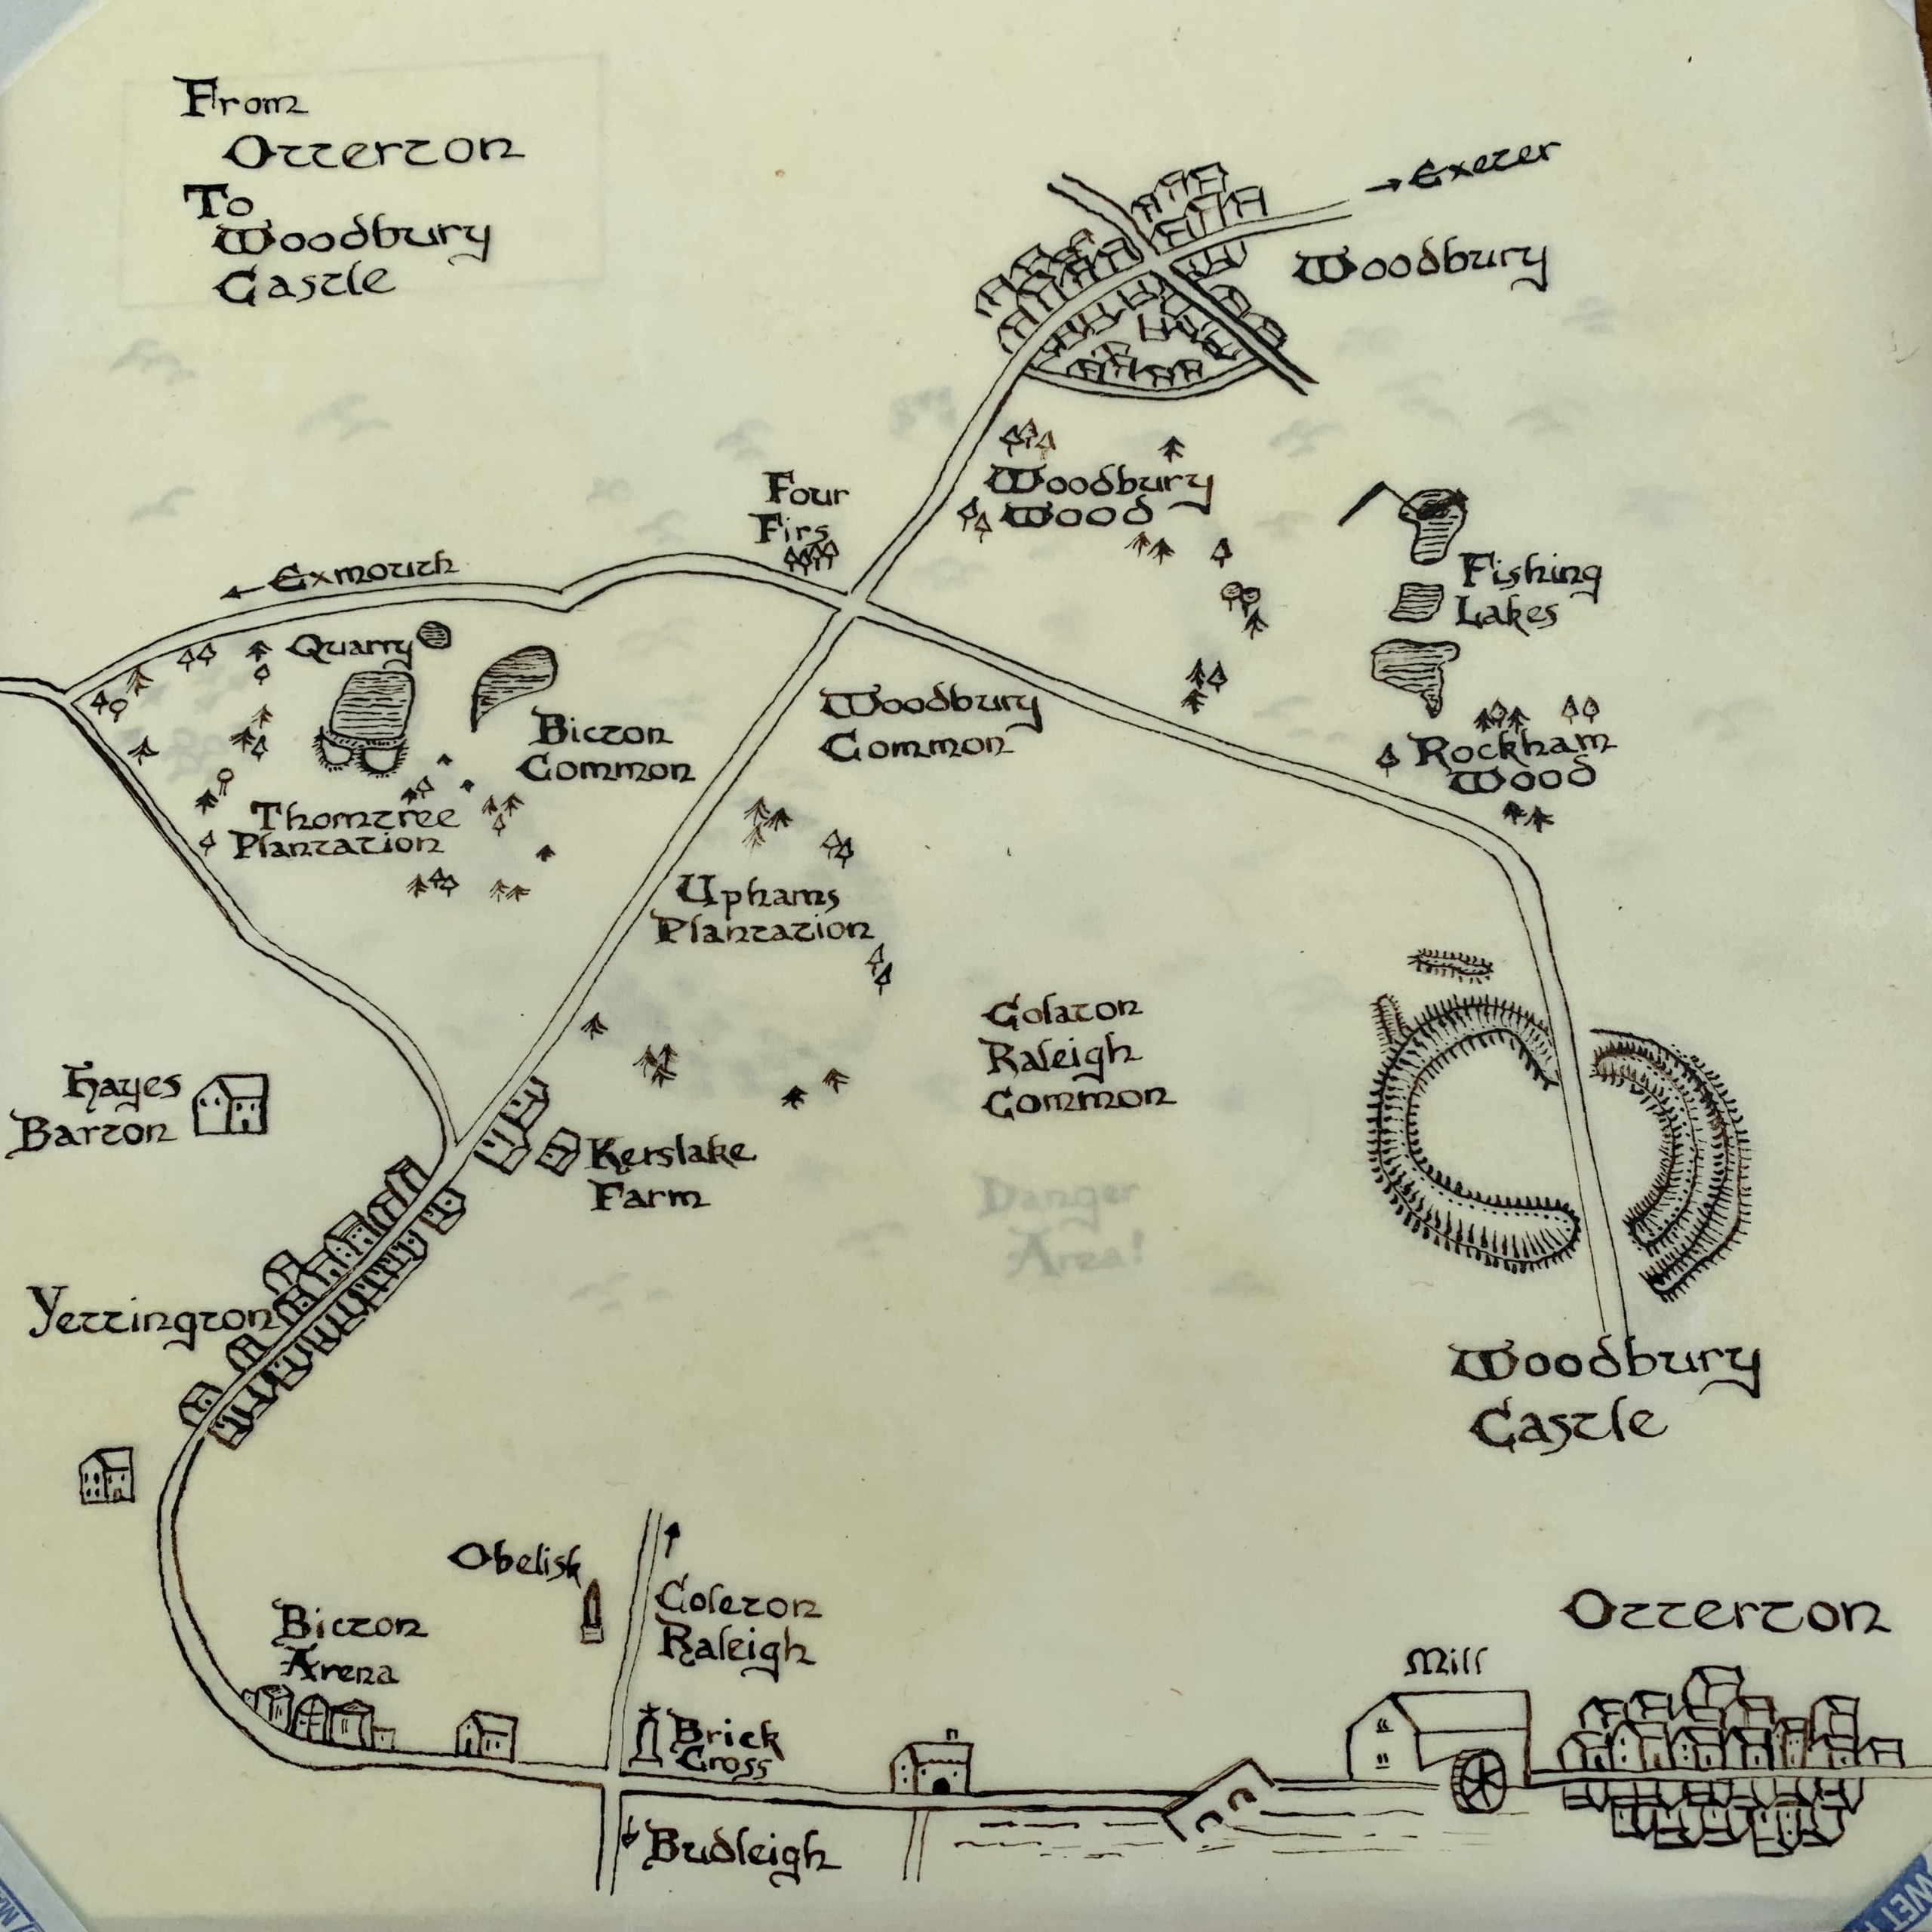 From
Otterton
To
Woodbury
Castle
→ Exeter
Woodbury
Four
Firs
Woodbury
Wood
Fishing
Lakes
← Exmouth
Quarry
Bicton
Common
Woodbury
Common
Rockham
Wood
Thorntree
Plantation
Uphams
Plantation
Colaton
Raleigh
Common
Hayes
Barton
Kerslake
Farm
Danger
Area!
Yettington
Woodbury
Castle
Obelisk
Coleton
Raleigh
Bicton
Arena
Otterton
Mill
Brick
Cross
Budleigh